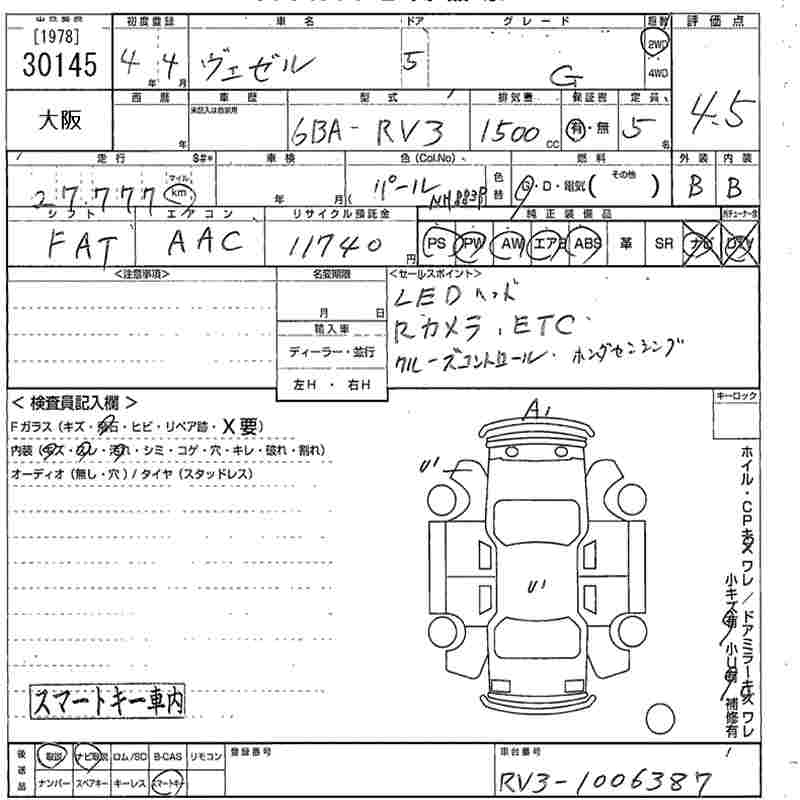 [1978]
30145
大阪
初度登録 車名 ドア グレード 駆動 評価点
4年 4月 ヴェゼル 5 G 2WD 4WD 4.5
西暦 車歴 型式 排気量 保証書 定員
年 6BA-RV3 1500cc 有・無 5名
走行 車検 色(Col.No) 色替 燃料 外装 内装
27,777 マイル km 年 月( パール NH883P G・D・電気( その他 ) B B
シフト エアコン リサイクル預託金 純正装備品
FAT AAC 11740円 PS PW AW エアB ABS 革 SR ナビ
<注意事項> 名変期限 <セールスポイント>
月 日
輸入車
ディーラー・並行
左H・右H
LEDヘッド
Rカメラ、ETC
クルーズコントロール・ホンダセンシング
キーロック
<検査員記入欄>
Fガラス(キズ・飛石・ヒビ・リペア跡・X要)
内装(キズ・スレ・汚れ・シミ・コゲ・穴・キレ・破れ・割れ)
オーディオ(無し・穴)/タイヤ(スタッドレス)
A1
U1
U1
ホイル・CPキズ ワレ/ドアミラーキズ ワレ
小キズ有 小U有 補修有
スマートキー車内
後送品 取説 ナビ取説 ロム/SD B-CAS リモコン
ナンバー スペアキー キーレス スマートキー
登録番号 車台番号
RV3-1006387